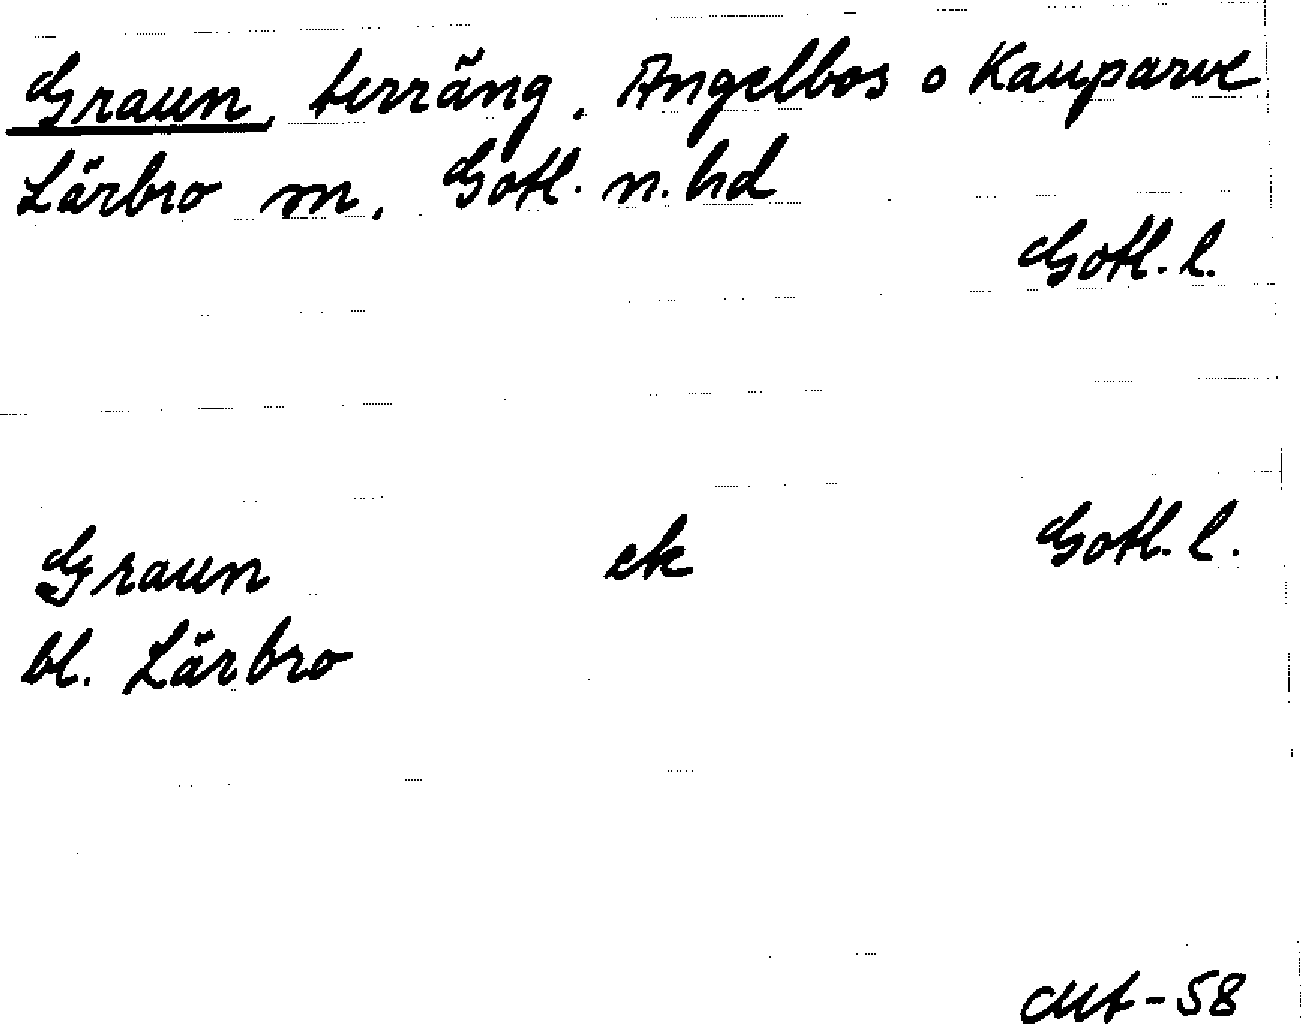 Graun, terräng. Angelbos o Kauparve
Lärbro sn, Gotl. n. hd
Gotl. l.
Graun ek Gotl. l.
bl. Lärbro
-58